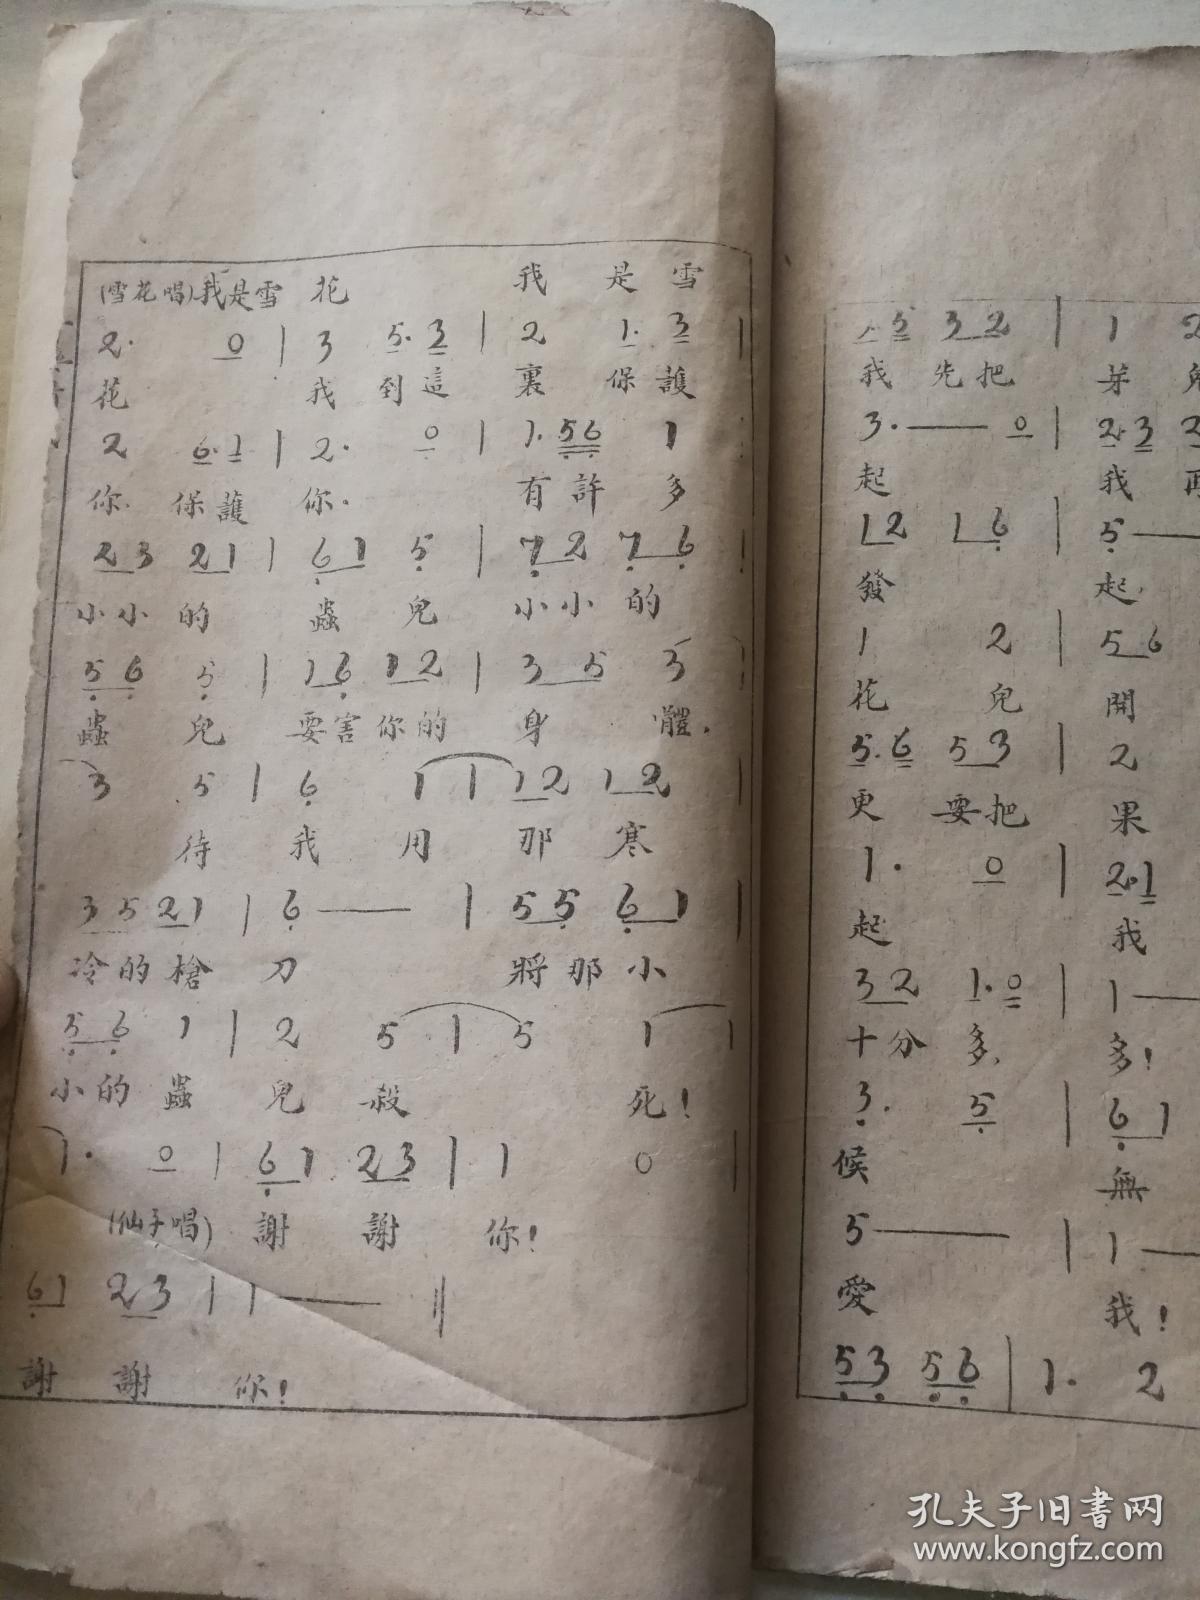 (雪花唱)我是雪 花 我 是 雪
2· 0 | 3 5·3 | 2 1·3 |
花 我 到 這 裏 保 護
2 6·1 | 2· 0 | 1·56 1
你. 保 護 你. 有 許 多
23 21 | 61 5 | 72 76
小 小 的 蟲 兒 小 小 的
56 5 | 16 12 | 3 5 3
蟲 兒 要 害 你 的 身 體.
3 5 | 6 1 | 12 12 |
待 我 用 那 寒
35 21 | 6 — | 55 61 |
冷 的 槍 刀 將 那 小
56 1 | 2 5 | 5 1 |
小 的 蟲 兒 殺 死!
1· 0 | 61 23 | 1 0 |
(仙子唱) 謝 謝 你!
61 23 | 1 — ‖
謝 謝 你!
5 32 | 1 2
我 先 把 芽
3· — 0 | 2·3 2
起 我 再
12 16 | 5 —
發 起.
1 2 | 56
花 兒 開
5·6 53 | 2
更 要 把 果
1· 0 | 2·1
起 我
32 1·0 | 1 —
十 分 多, 多!
3· 5 | 61
候 無
5 — | 1 —
愛 我!
53 56 | 1· 2
孔夫子旧书网
www.kongfz.com